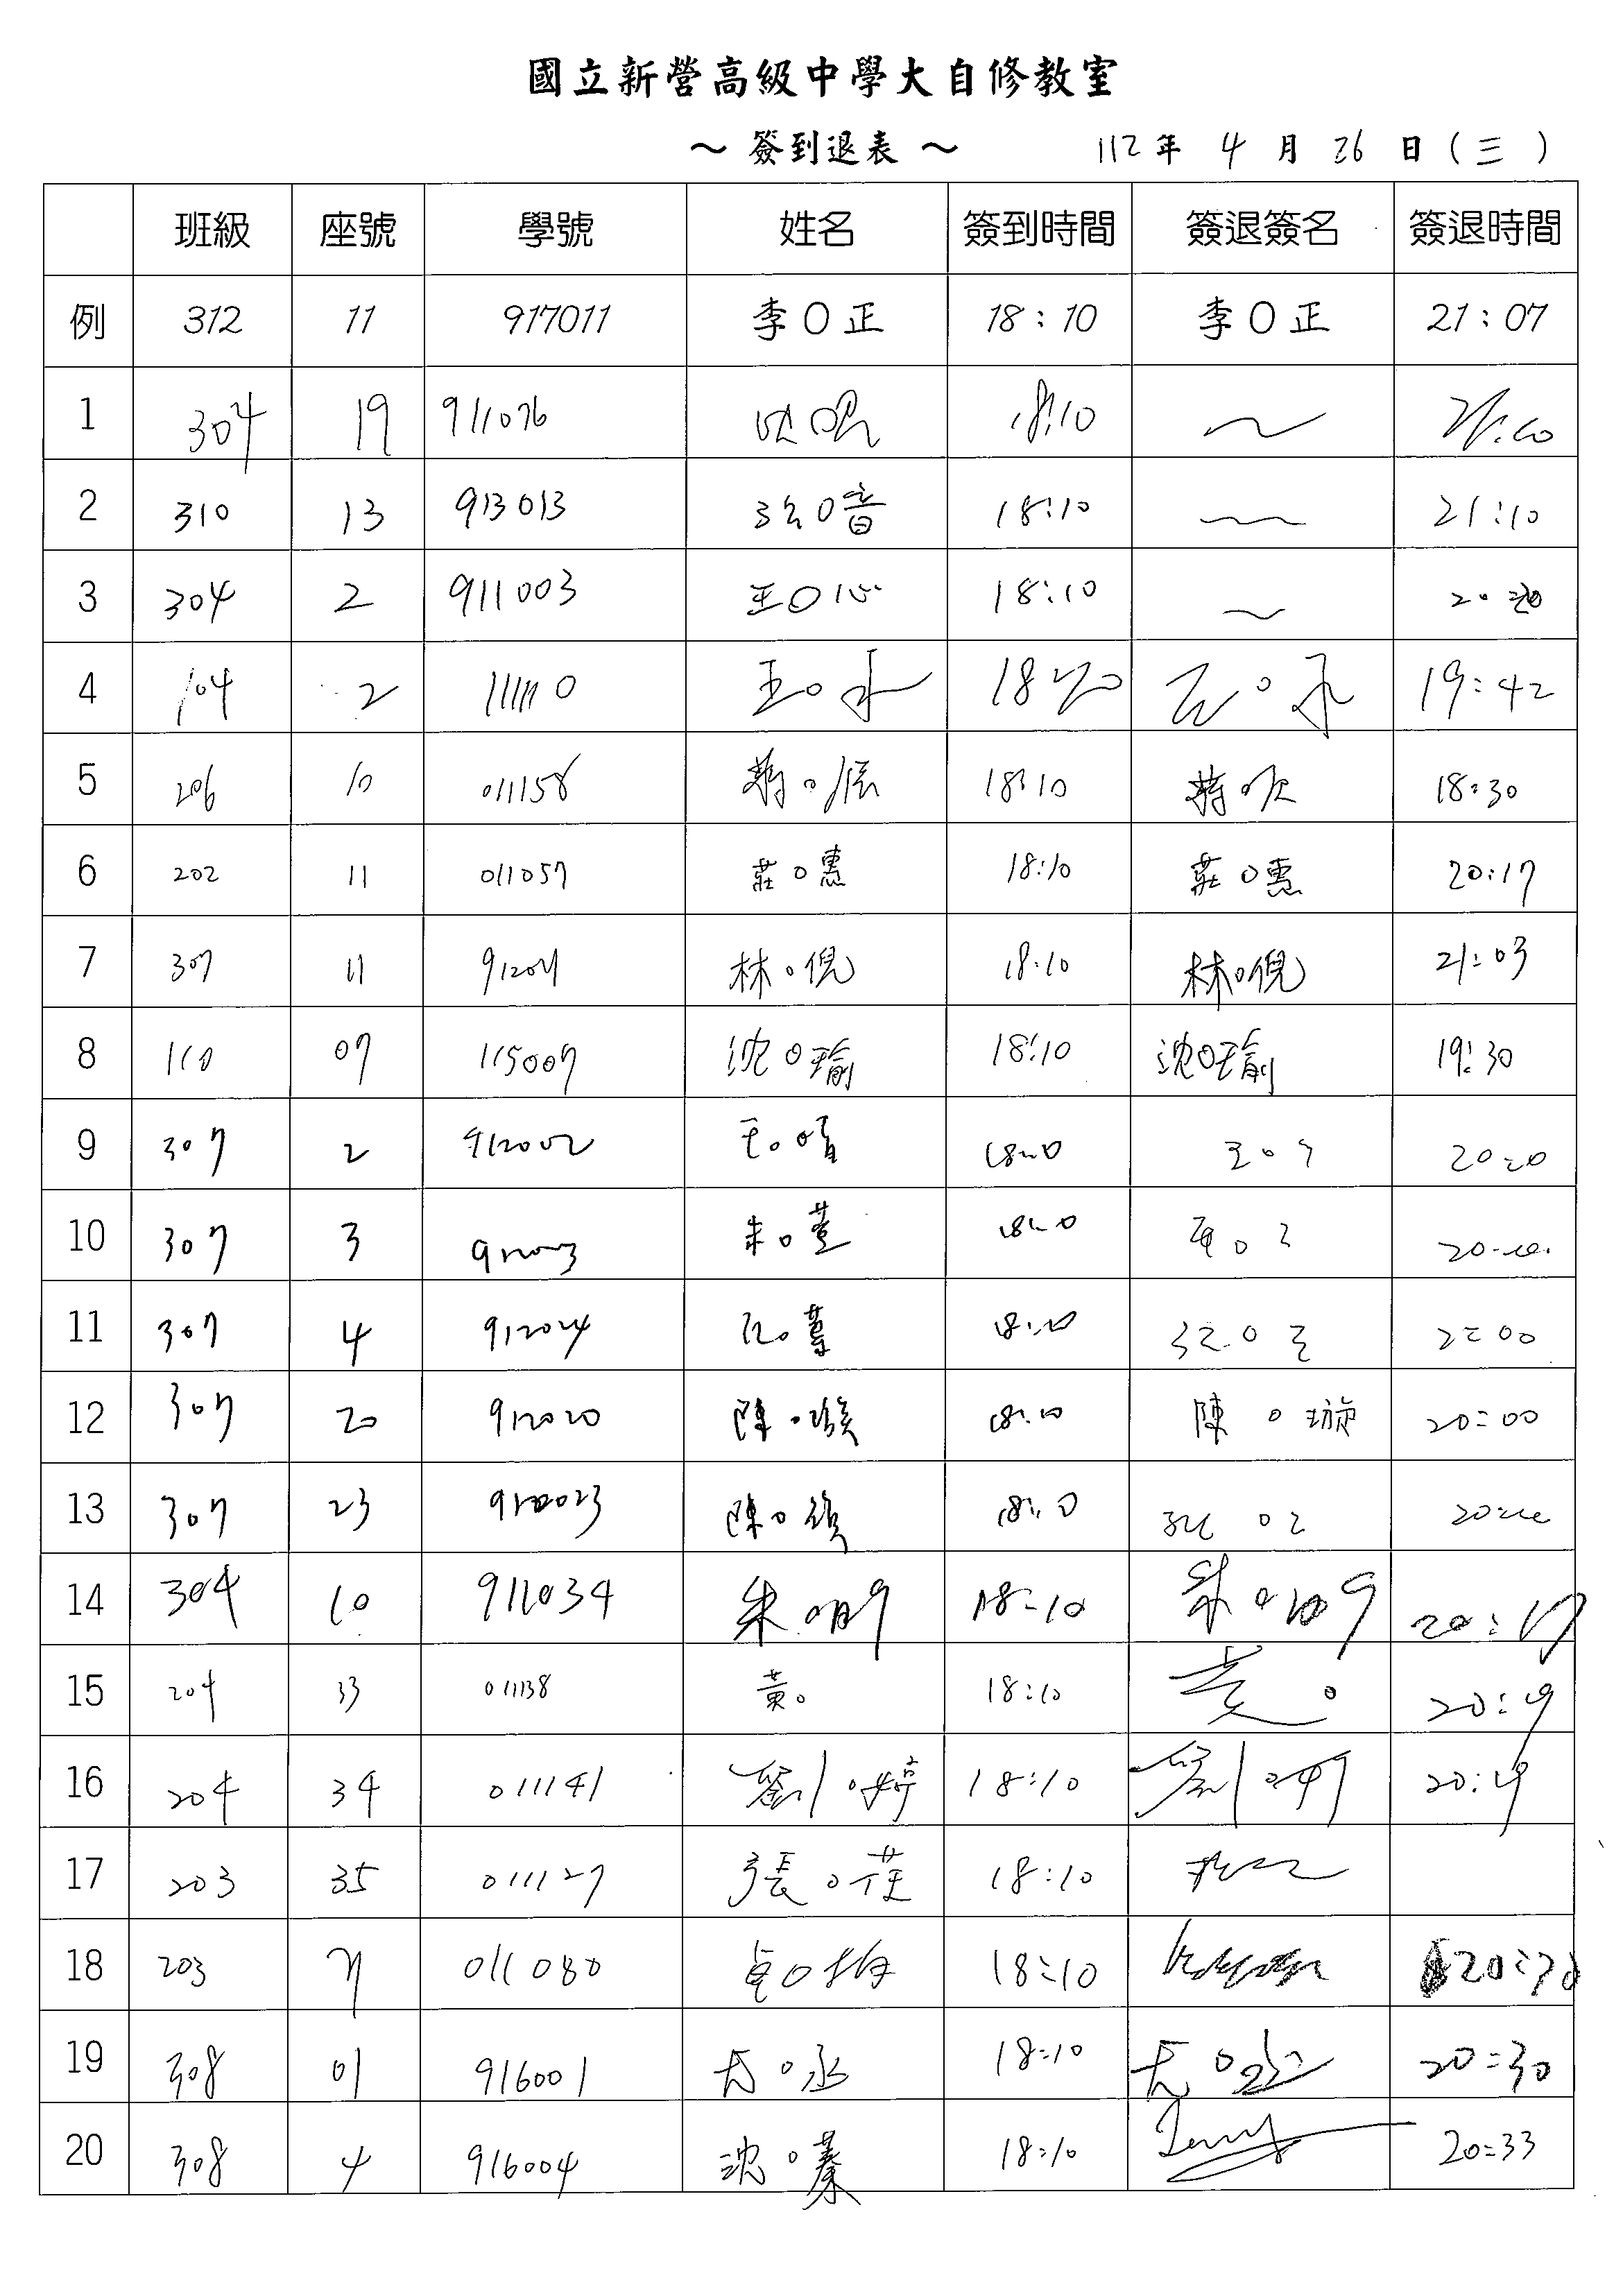 國立新營高級中學大自修教室
～ 簽到退表 ～ 112 年 4 月 26 日 ( 三 )
班級 座號 學號 姓名 簽到時間 簽退簽名 簽退時間
例 312 11 917011 李O正 18:10 李O正 21:07
1 304 19 911076 18:10
2 310 13 913013 O音 18:10 21:10
3 304 2 911003 王O心 18:10
4 104 2 111110 王O永 18 王O永 19:42
5 206 10 011158 蔣O辰 18:10 蔣O 18:30
6 202 11 011057 莊O惠 18:10 莊O惠 20:17
7 307 11 912011 林O倪 18:10 林O倪 21:03
8 110 07 115007 沈O瑜 18:10 沈O瑜 19:30
9 307 2 912002 王O晴 18:10 王O
10 307 3 912003 朱O萱 18:10
11 307 4 912024 18:10
12 307 20 912020 陳O璇 18:10 陳O璇 20:00
13 307 23 912023 陳O 18:10
14 304 10 911034 朱O明 18:10 朱O 20:17
15 204 33 011138 黃O 18:10 黃O 20:19
16 204 34 011141 劉O婷 18:10 劉O婷 20:19
17 203 35 011127 張O荏 18:10
18 203 011080 18:10
19 308 01 916001 尤O丞 18:10 尤O丞 20:30
20 308 4 916004 沈O蓁 18:10 20:33